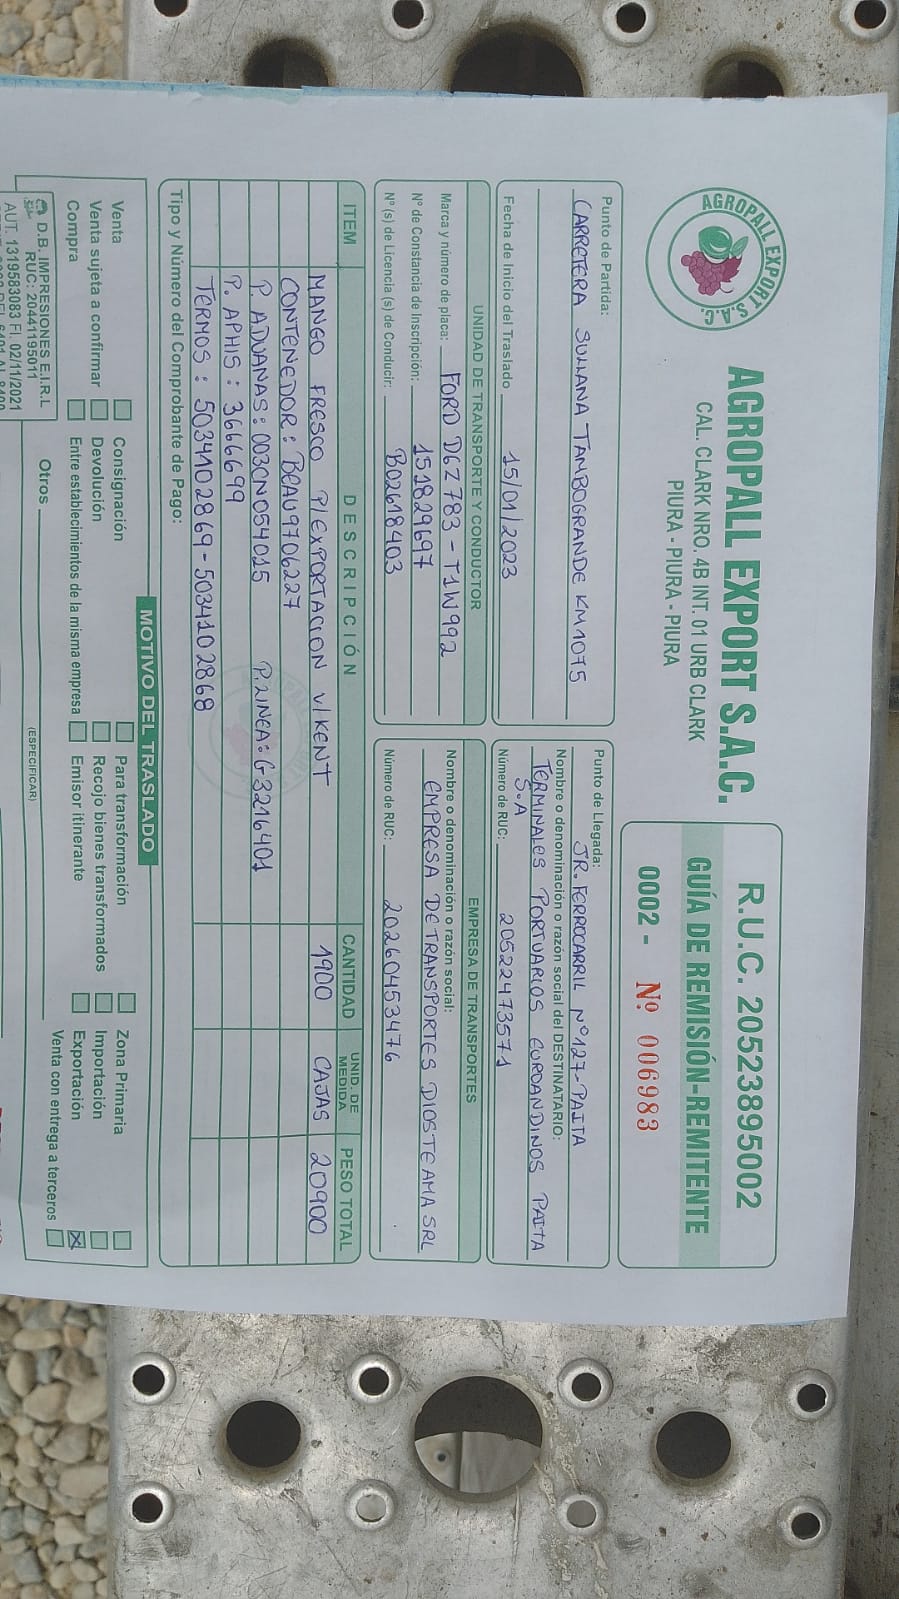 AGROPALL EXPORT S.A.C.
AGROPALL EXPORT S.A.C.
CAL. CLARK NRO. 4B INT. 01 URB CLARK
PIURA - PIURA - PIURA
R.U.C. 20523895002
GUÍA DE REMISIÓN-REMITENTE
0002 - Nº 006983
Punto de Partida:
CARRETERA SULLANA TAMBOGRANDE KM 1075
Fecha de Inicio del Traslado 15/01/2023
Punto de Llegada:
JR. FERROCARRIL Nº127-PAITA
Nombre o denominación o razón social del DESTINATARIO:
TERMINALES PORTUARIOS EUROANDINOS PAITA
S.A
Número de RUC: 20522473571
UNIDAD DE TRANSPORTE Y CONDUCTOR
Marca y número de placa: FORD D6Z 783 - T1W992
Nº de Constancia de Inscripción: 151829697
Nº (s) de Licencia (s) de Conducir: B02618403
EMPRESA DE TRANSPORTES
Nombre o denominación o razón social:
EMPRESA DE TRANSPORTES DIOS TE AMA SRL
Número de RUC: 20260453476
ITEM DESCRIPCIÓN CANTIDAD UNID. DE MEDIDA PESO TOTAL
MANGO FRESCO P/EXPORTACION V/KENT 1900 CAJAS 20900
CONTENEDOR: BEAU9706227
P. ADUANAS: 003CN054015 P. LINEA: G3216401
P. APHIS: 3666699
TERMOS: 503410 2869 - 503410 2868
Tipo y Número del Comprobante de Pago:
MOTIVO DEL TRASLADO
Venta Consignación Para transformación Zona Primaria
Venta sujeta a confirmar Devolución Recojo bienes transformados Importación
Compra Entre establecimientos de la misma empresa Emisor itinerante Exportación X
Otros Venta con entrega a terceros
(ESPECIFICAR)
D.B. IMPRESIONES E.I.R.L
RUC: 20441195011
AUT. 1319583083 FI. 02/11/2021